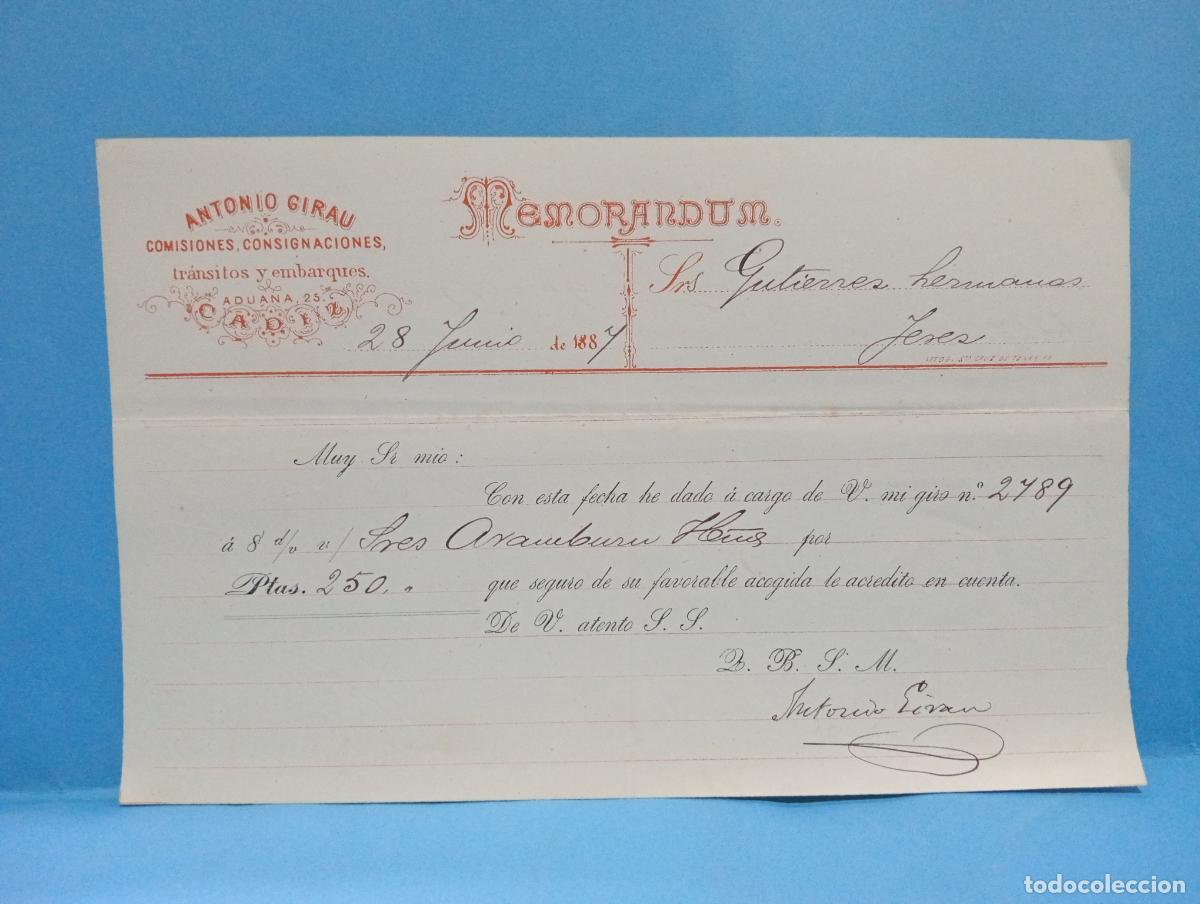 ANTONIO GIRAU
COMISIONES, CONSIGNACIONES,
tránsitos y embarques.
ADUANA, 25.
CADIZ
MEMORANDUM.
28 Junio de 1887
Srs Gutierres hermanos
Jeres
Muy Sr mio:
Con esta fecha he dado á cargo de V. mi giro n.º 2789
á 8 d/v o/ Sres Aramburu Hños por
Ptas. 250,"
que seguro de su favorable acogida le acredito en cuenta.
De V. atento S. S.
Q. B. S. M.
Antonio Girau
todocoleccion